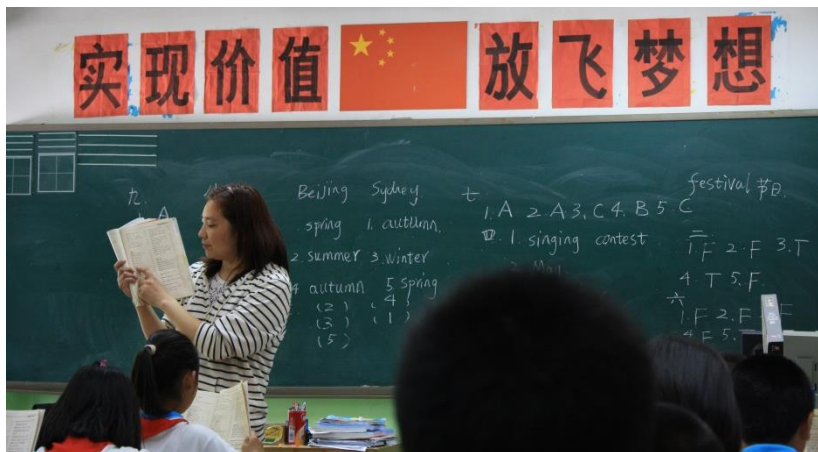 实现价值 放飞梦想
九
A
Beijing Sydney
spring 1. autumn.
2. summer 3. winter
4. autumn 5. spring
(2) (4)
(3) (1)
(5)
七
1. A 2. A 3. C 4. B 5. C
四. 1. singing contest.
2. May
festival 节日.
二
1. F 2. F 3. T
4. T 5. F.
六
1. F 2. F F
4. F 5.